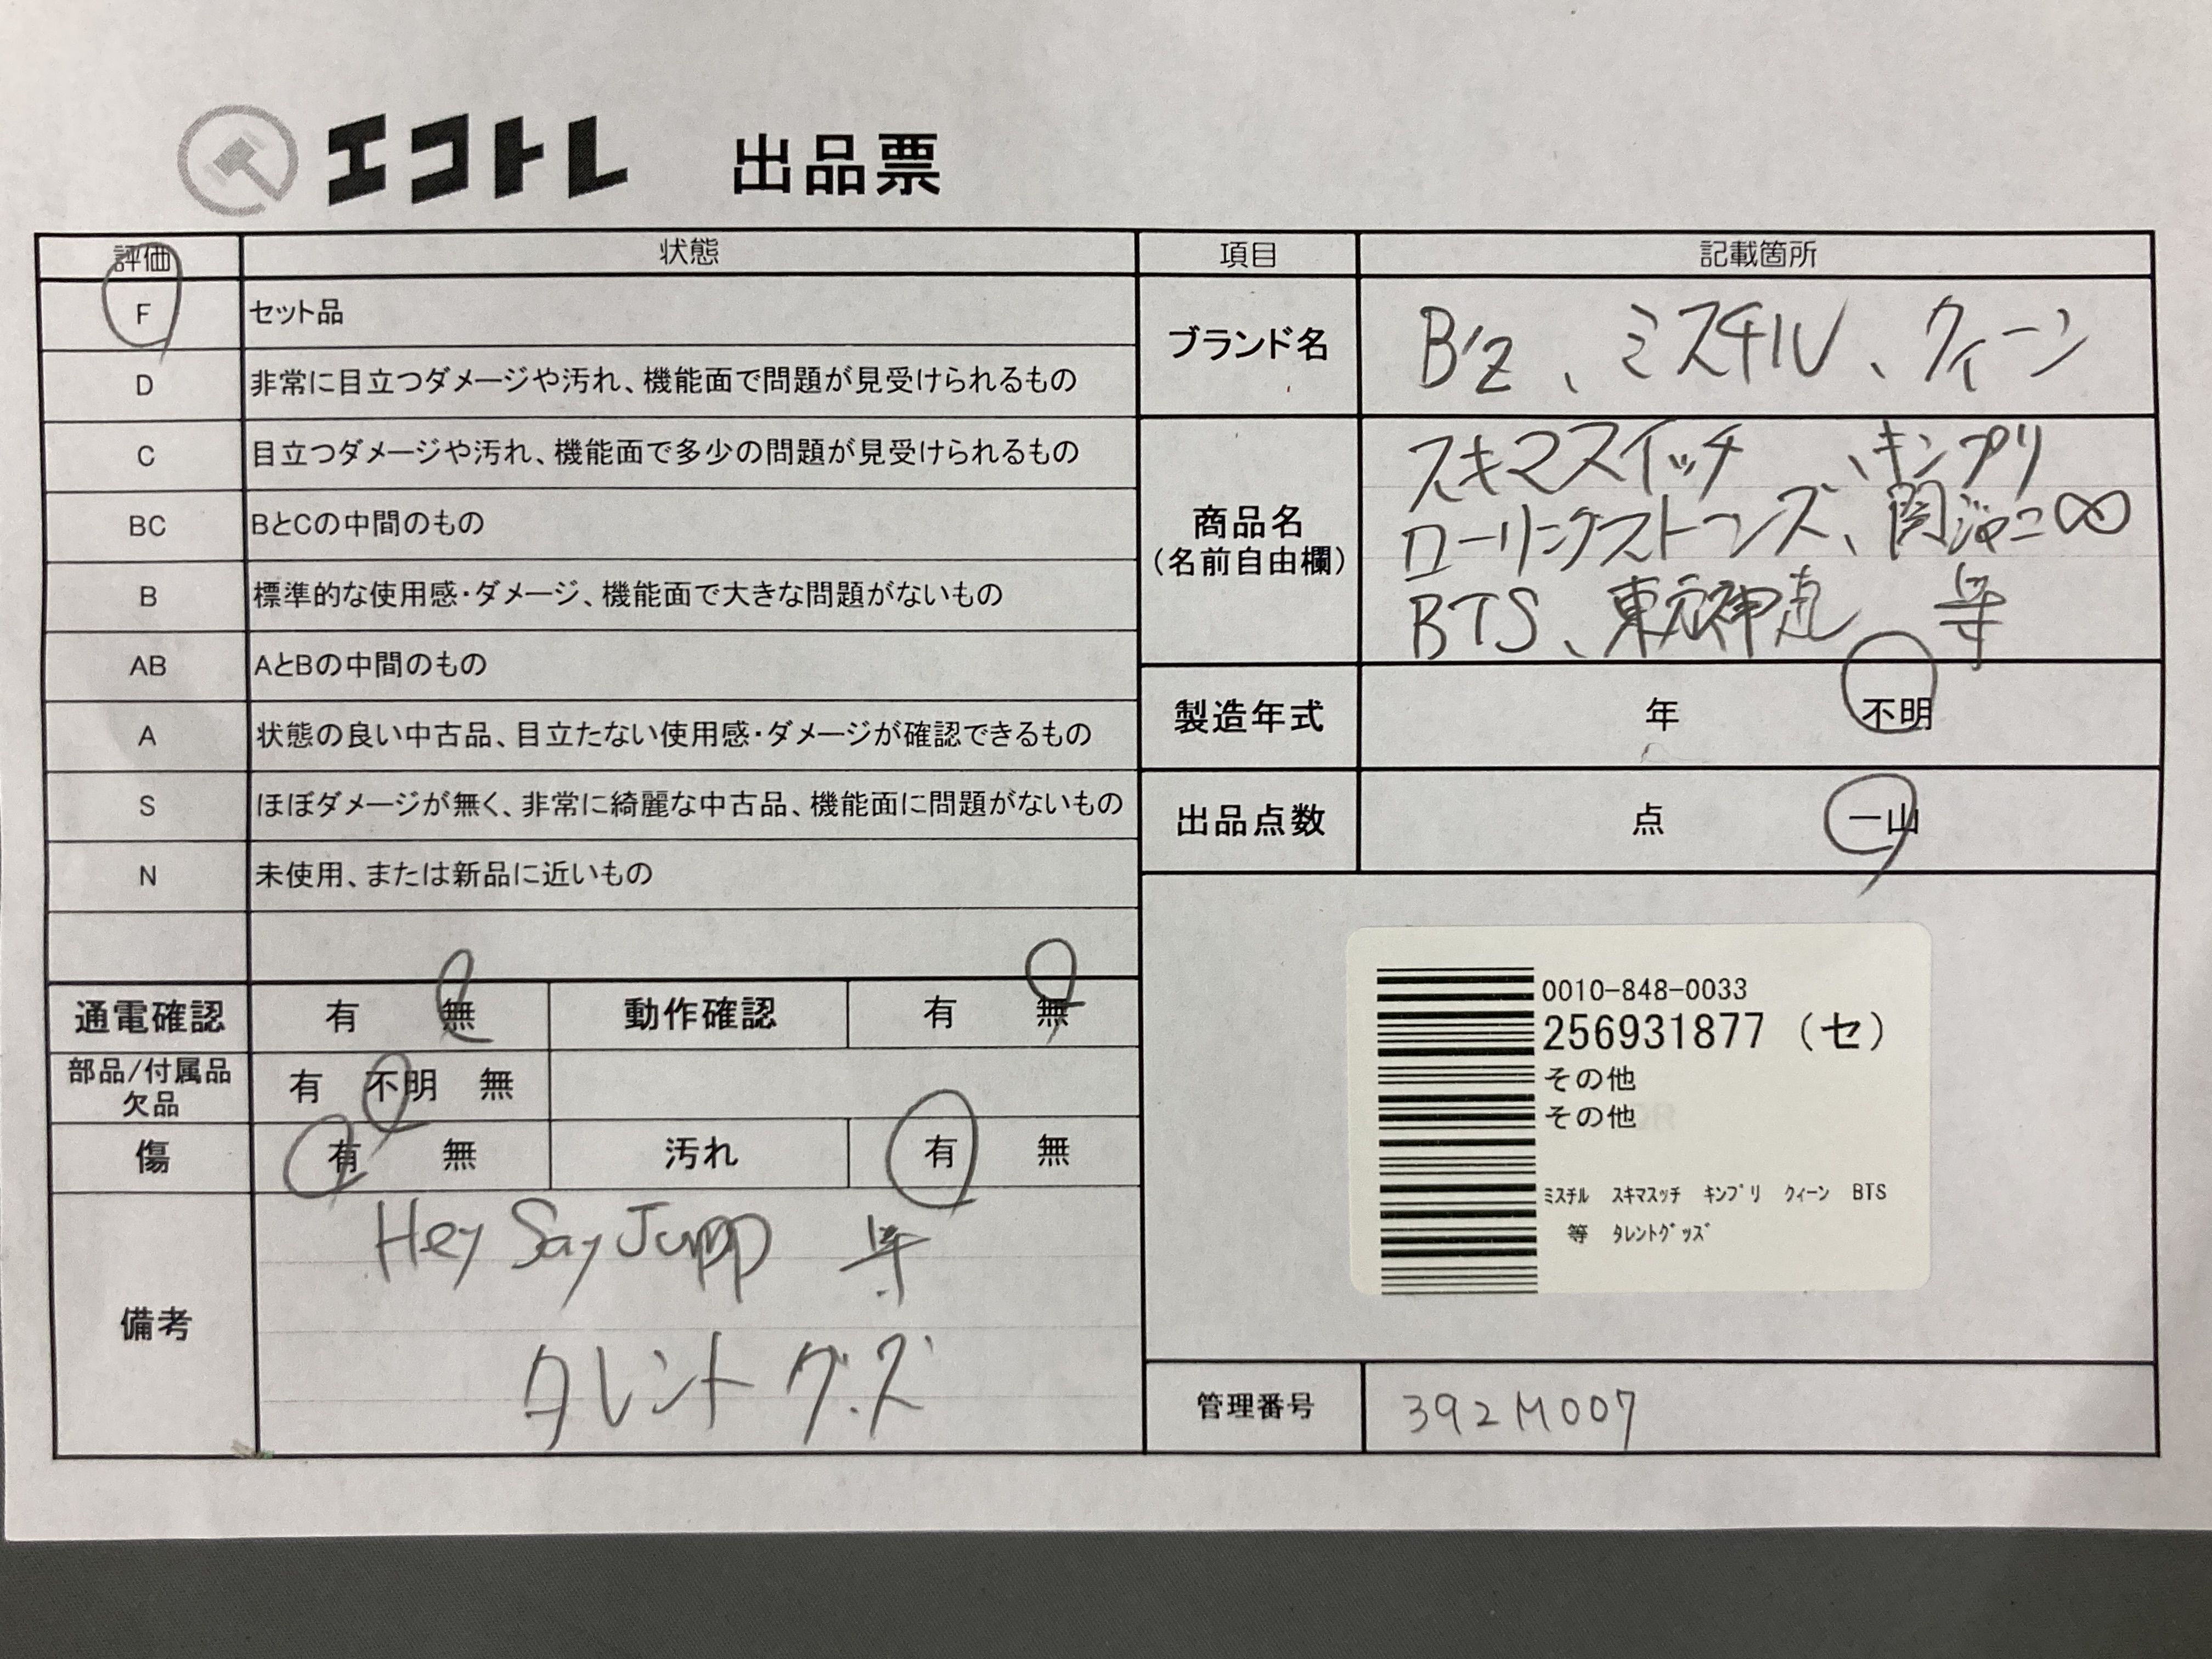 エコトレ 出品票
評価 状態
F セット品
D 非常に目立つダメージや汚れ、機能面で問題が見受けられるもの
C 目立つダメージや汚れ、機能面で多少の問題が見受けられるもの
BC BとCの中間のもの
B 標準的な使用感・ダメージ、機能面で大きな問題がないもの
AB AとBの中間のもの
A 状態の良い中古品、目立たない使用感・ダメージが確認できるもの
S ほぼダメージが無く、非常に綺麗な中古品、機能面に問題がないもの
N 未使用、または新品に近いもの
通電確認 有 無 動作確認 有 無
部品/付属品
欠品 有 不明 無
傷 有 無 汚れ 有 無
備考
Hey Say Jump 等
タレントグッズ
項目 記載箇所
ブランド名 B'z、ミスチル、クィーン
商品名
(名前自由欄)
スキマスイッチ、キンプリ
ローリングストーンズ、関ジャニ∞
BTS、東方神起 等
製造年式 年 不明
出品点数 点 一山
0010-848-0033
256931877 (セ)
その他
その他
ミスチル スキマスッチ キンプリ クィーン BTS
等 タレントグッズ
管理番号 392M007